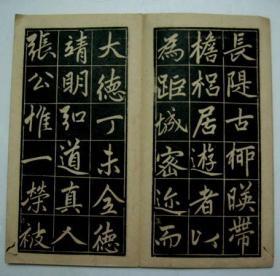 長隄古柳暎帶
檐梠居遊者以
為距城密迩而
大德丁未全德
靖明弘道真人
張公惟一榮被